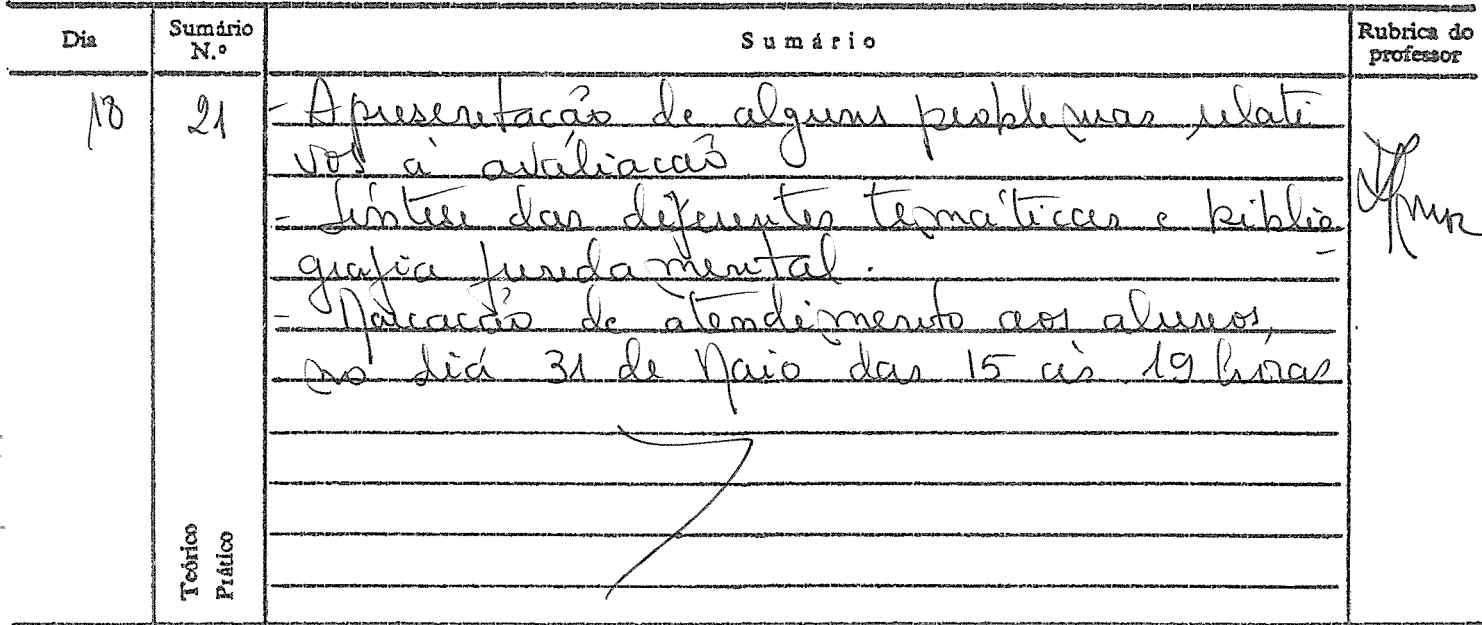 Dia
Sumário N.º
Sumário
Rubrica do professor
18 21 - Apresentação de alguns problemas relati
vos à avaliação
- Síntese das diferentes temáticas e biblio
grafia fundamental.
- Marcação de atendimento aos alunos,
no dia 31 de Maio das 15 às 19 horas
Teórico
Prático